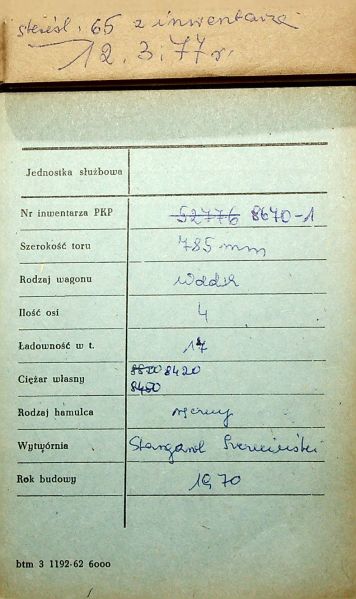 skreśl. 65 z inwentarza
12.3.77 r.
Jednostka służbowa
Nr inwentarza PKP 52776 8670-1
Szerokość toru 785 mm
Rodzaj wagonu Wddxh
Ilość osi 4
Ładowność w t. 17
Ciężar własny 8800 8420
8450
Rodzaj hamulca ręczny
Wytwórnia Stargard Szczeciński
Rok budowy 1970
btm 3 1192-62 6000